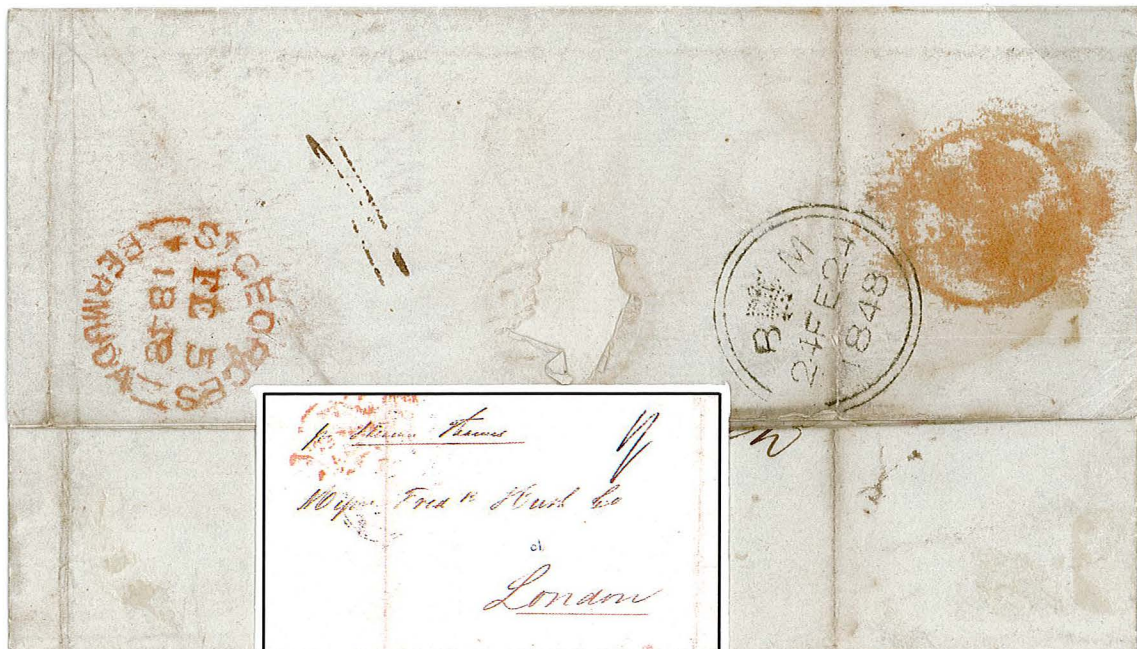 ST GEORGES
FE 5
1848
BERMUDA
B M
24FE24
1848
p Steamer Thames
Messrs Fredk Huth Co
London